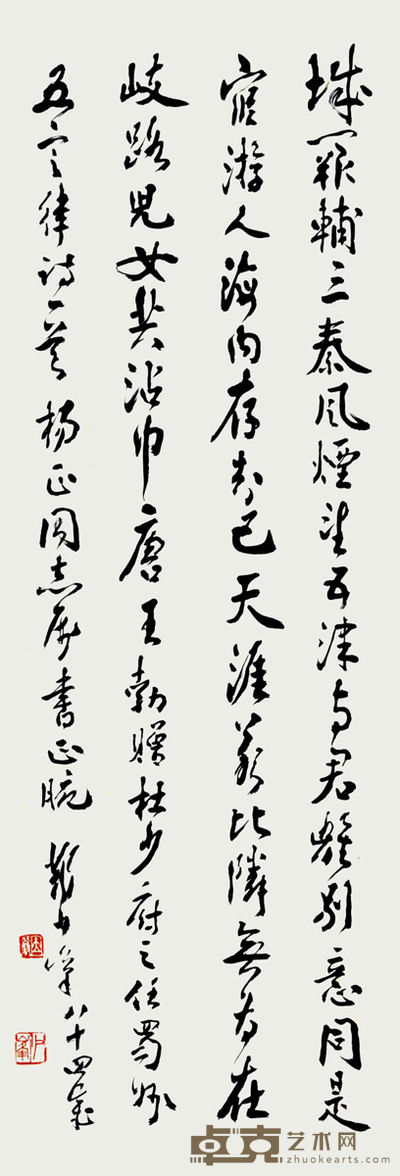 城阙辅三秦风烟望五津与君离别意同是
宦游人海内存知己天涯若比隣無为在
歧路児女共沾巾唐王勃赠杜少府之任蜀州
五言律诗一首杨正同志属书正腕
八十四岁
卓克艺术网
www.zhuokearts.com